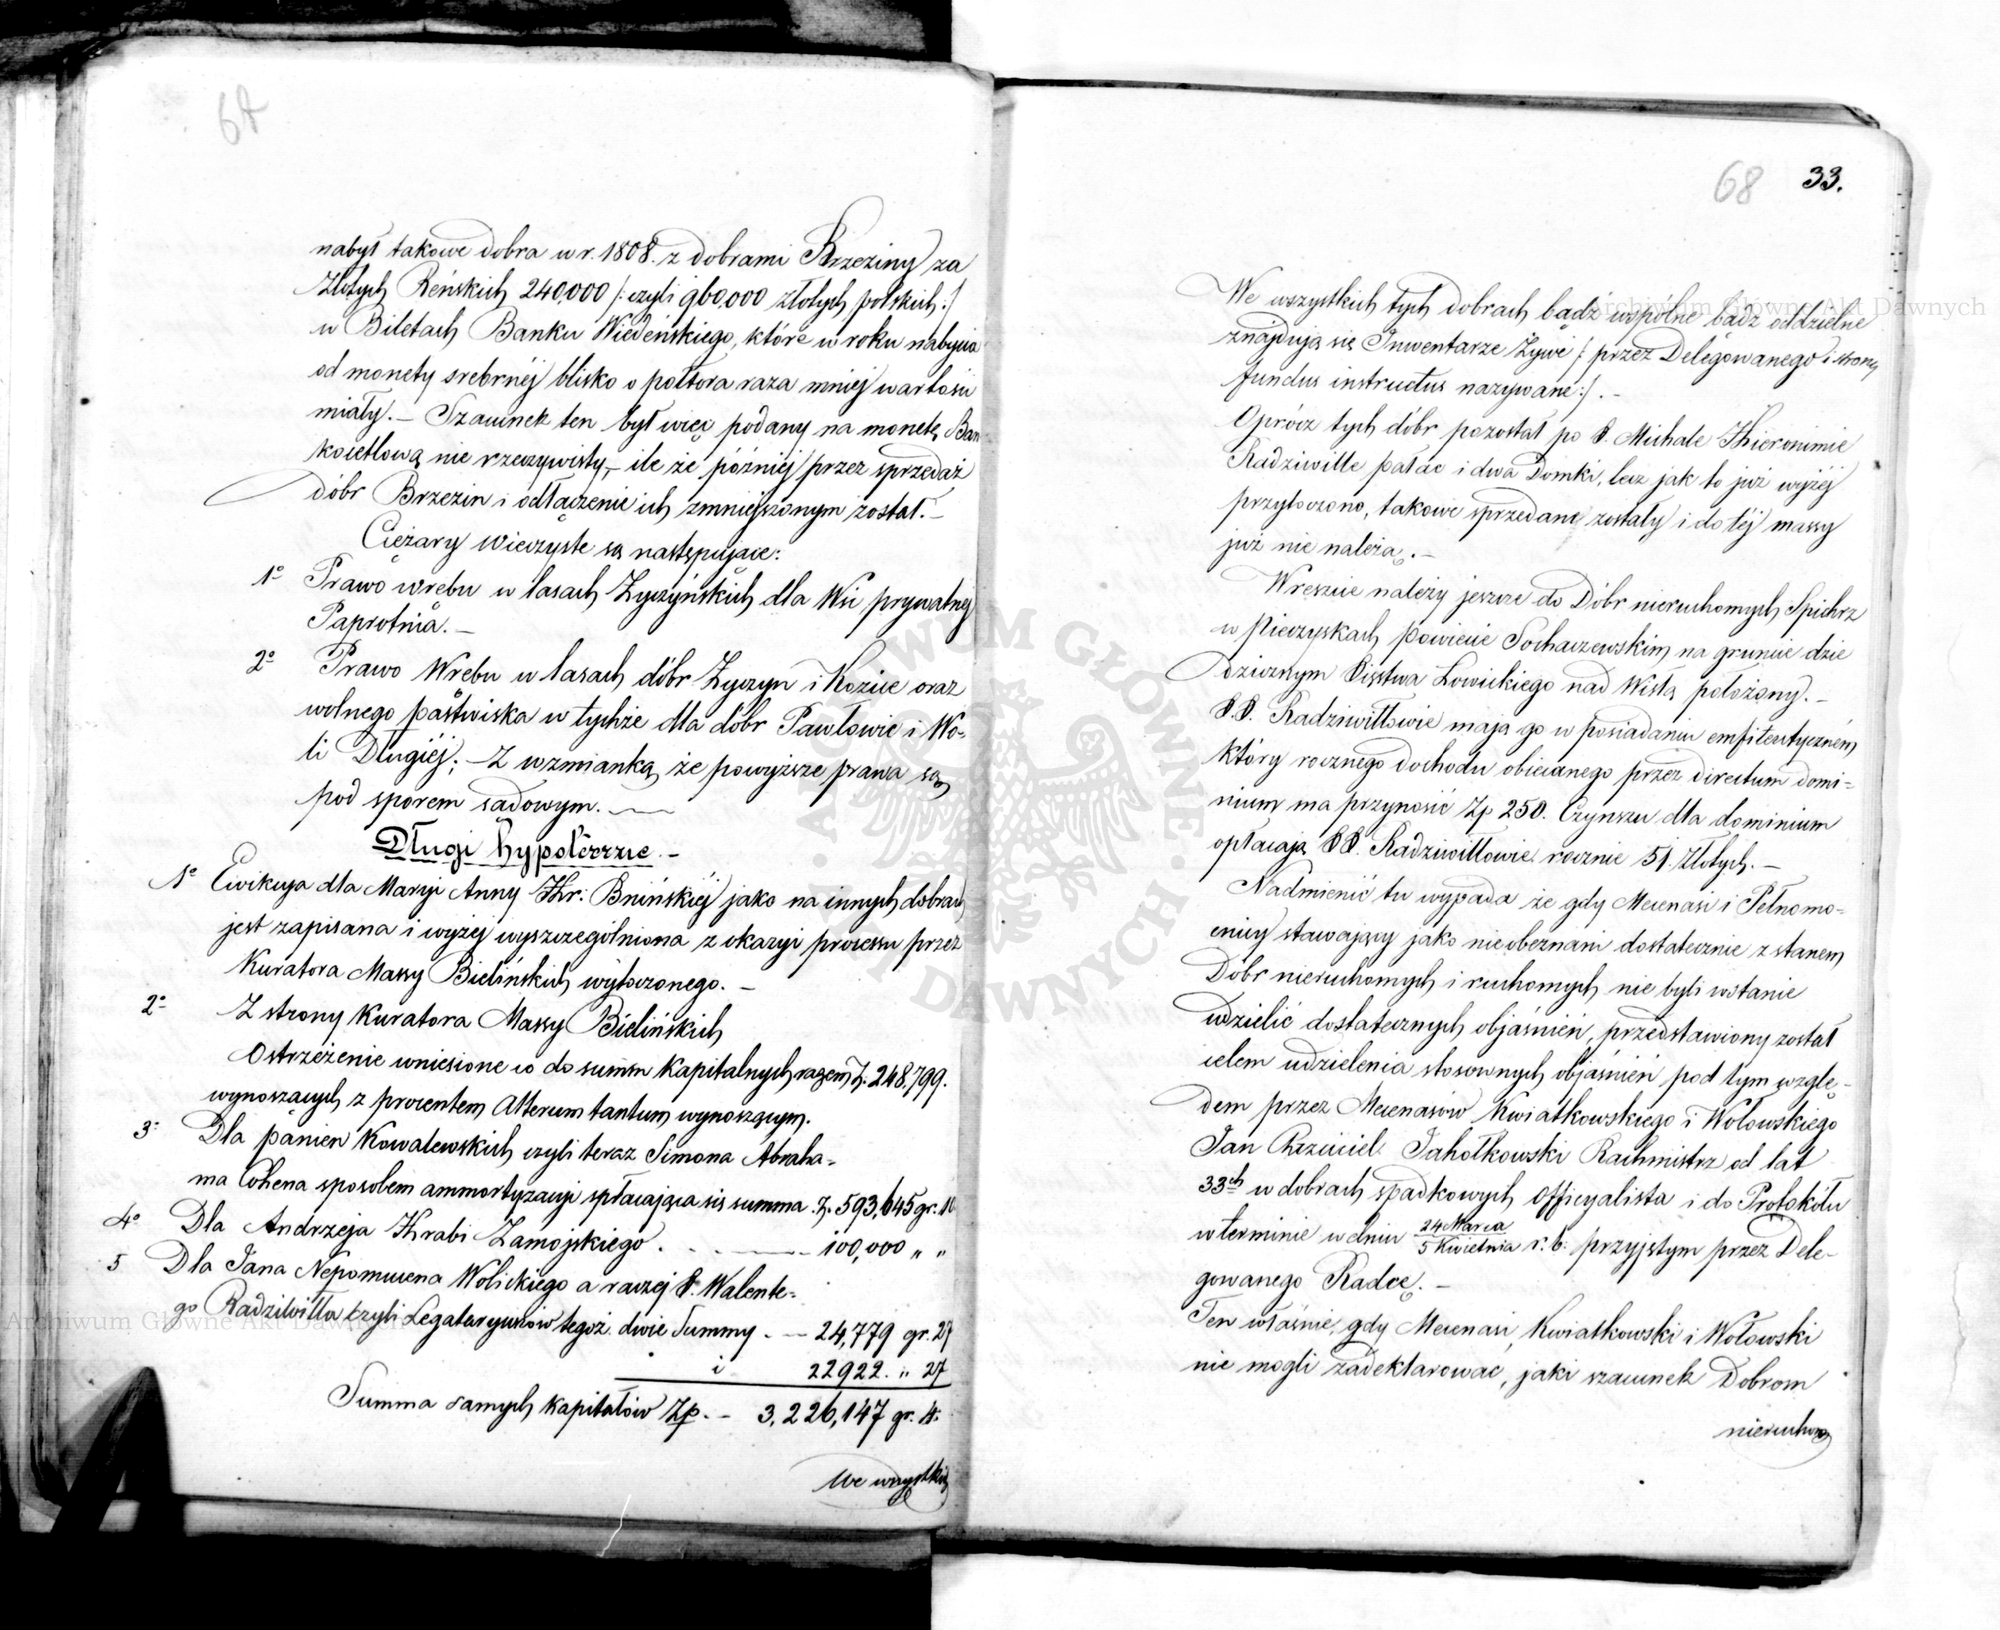 67
nabył takowe dobra w r. 1808. z dobrami Brzeziny za
Złotych Reńskich 240,000 /: czyli 960,000 złotych polskich :/
w Biletach Banku Wiedeńskiego, które w roku nabycia
od monety srebrnéj blisko o półtora raza mniéj wartości
miały. – Szacunek ten był więc podany na monetę Ban
kocetlową nie rzeczywisty, – ile że później przez sprzedaż
dóbr Brzezin i odłączenie ich zmniejszonym został. –
Ciężary wieczyste są następujące:
1º Prawo wrębu w lasach Życzyńskich dla Wsi prywatnéj
Paprotnia. –
2º Prawo Wrębu w lasach dóbr Życzyn i Kozice oraz
wolnego pastwiska w tychże dla dóbr Pawłowic i Wo=
li Długiéj; – Z wzmianką że powyższe prawa są
pod sporem sądowym. –
Długi hypoteczne. –
1º Ewikcya dla Maryi Anny Hr: Bnińskiéj jako na innych dobrach
jest zapisana i wyżéj wyszczególniona z okazyi processu przez
Kuratora Massy Bielińskich wytoczonego. –
2º Z strony Kuratora Massy Bielińskich
Ostrzeżenie wniesione co do summ Kapitalnych razem Zł. 248,799.
wynoszących z procentem Alterum tantum wynoszącym.
3º Dla panien Kowalewskich czyli teraz Simona Abraha=
ma Cohena sposobem ammortyzacyi spłacająca się summa Zł. 593,645 gr. 10
4º Dla Andrzeja Hrabi Zamojskiego . – – 100,000 „ „
5 Dla Jana Nepomucena Wolickiego a raczéj X. Walente=
go Radziwiłła czyli Legataryuszów tegoż dwie Summy . – – 24,779 gr. 27
i 22922. „ 27
Summa samych kapitałów Zp. – 3,226,147 gr. 4.
We wszystkich
68 33.
We wszystkich tych dobrach bądź wspólne bądź oddzielne
znajdują się Inwentarze Żywe /: przez Delegowanego i strony
fundus instructus nazywane :/ . –
Oprócz tych dóbr pozostał po X. Michale Hieronimie
Radziwille pałac i dwa Domki, lecz jak to już wyżéj
przytoczono, takowe sprzedane zostały i do téj massy
już nie należą. –
Wreszcie należy jeszcze do Dóbr nieruchomych Spichrz
w Pieczyskach powiecie Sochaczewskim na gruncie dzie
dzicznym Xięstwa Łowickiego nad Wisłą położony. –
X.X. Radziwiłłowie mają go w posiadaniu emfiteutyczném,
który rocznego dochodu obiecanego przez directum domi=
nium ma przynosić Zp 250. Czynszu dla dominium
opłacają XX. Radziwiłłowie rocznie 51. Złotych. –
Nadmienić tu wypada że gdy Mecenasi i Pełnomo=
cnicy stawający jako nieobeznani dostatecznie z stanem
Dóbr nieruchomych i ruchomych nie byli wstanie
udzielić dostatecznych objaśnień, przedstawiony został
celem udzielenia stosownych objaśnień pod tym wzglę=
dem przez Mecenasów Kwiatkowskiego i Wołowskiego
Jan Chrzciciel Jahołkowski Rachmistrz od lat
33ch w dobrach spadkowych Officyalista i do Protokółu
w terminie w dniu 24 Marca / 5 Kwietnia r. b. przyjętym przez Dele=
gowanego Radcę. –
Ten właśnie, gdy Mecenasi, Kwiatkowski i Wołowski
nie mogli zadeklarować, jaki szacunek Dobrom
nieruchom
Archiwum Główne Akt Dawnych
Archiwum Główne Akt Dawnych
ARCHIWUM GŁÓWNE AKT DAWNYCH